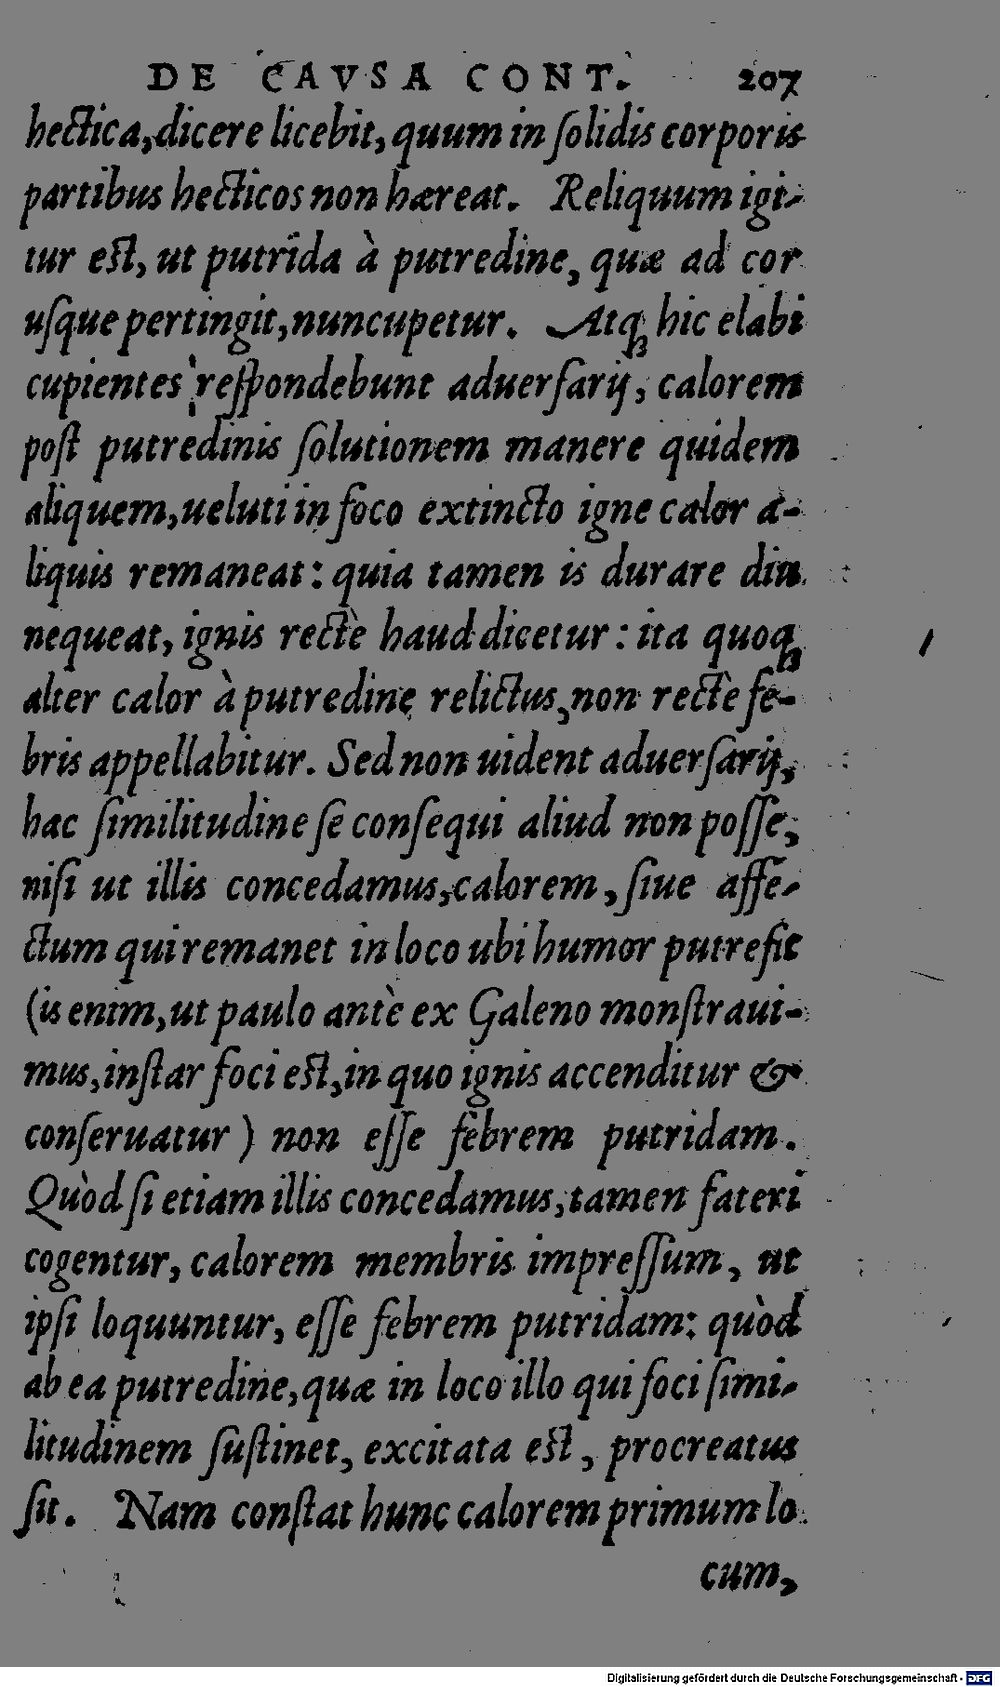 DE CAVSA CONT. 207
hectica, dicere licebit, quum in ſolidis corporis
partibus hecticos non hæreat. Reliquum igi-
tur eſt, ut putrida à putredine, quæ ad cor
uſque pertingit, nuncupetur. Atq; hic elabi
cupientes reſpondebunt aduerſarij, calorem
poſt putredinis ſolutionem manere quidem
aliquem, ueluti in foco extincto igne calor a-
liquis remaneat: quia tamen is durare diu
nequeat, ignis rectè haud dicetur: ita quoq;
alter calor à putredine relictus, non rectè fe-
bris appellabitur. Sed non uident aduerſarij,
hac ſimilitudine ſe conſequi aliud non poſſe,
niſi ut illis concedamus, calorem, ſiue affe-
ctum qui remanet in loco ubi humor putrefit
(is enim, ut paulo antè ex Galeno monſtraui-
mus, inſtar foci eſt, in quo ignis accenditur &
conſeruatur) non eſſe febrem putridam.
Quòd ſi etiam illis concedamus, tamen fateri
cogentur, calorem membris impreſſum, ut
ipſi loquuntur, eſſe febrem putridam: quòd
ab ea putredine, quæ in loco illo qui foci ſimi-
litudinem ſuſtinet, excitata eſt, procreatus
ſit. Nam conſtat hunc calorem primum lo
cum,
Digitalisierung gefördert durch die Deutsche Forschungsgemeinschaft - DFG